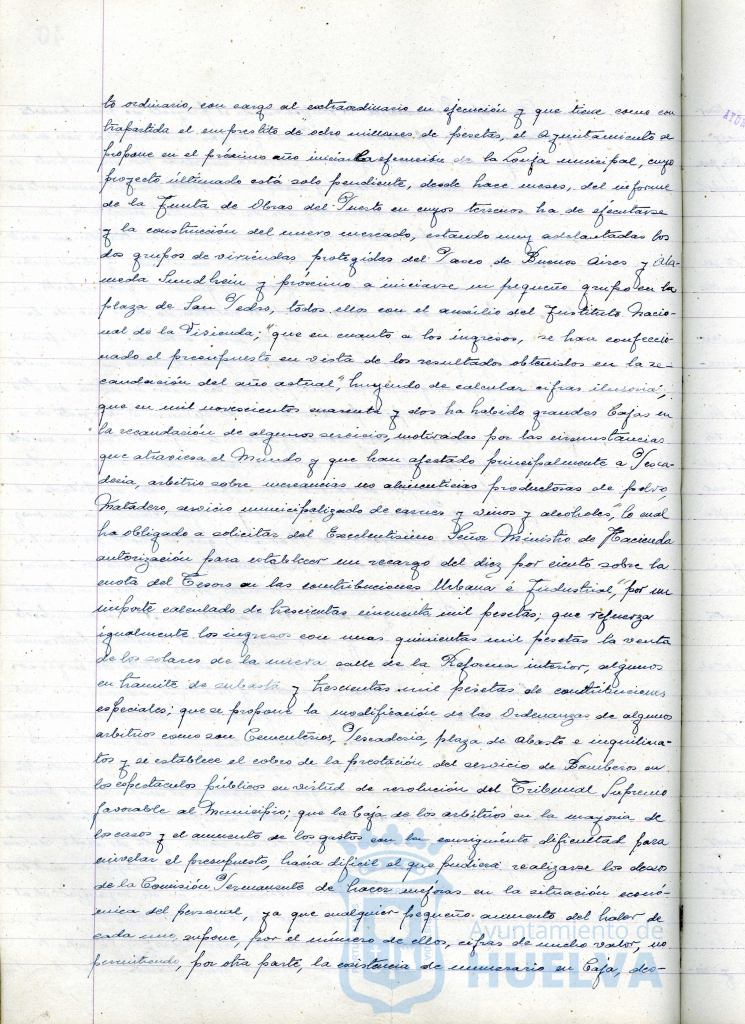 to ordinario, con cargo al extraordinario en ejecución y que tiene como con
trapartida el empréstito de ocho millones de pesetas, el Ayuntamiento se
propone en el próximo año iniciar la ejecución de la Lonja municipal, cuyo
proyecto ultimado está solo pendiente, desde hace meses, del informe
de la Junta de Obras del Puerto en cuyos terrenos ha de ejecutarse
y la construcción del nuevo mercado, estando muy adelantadas los
dos grupos de viviendas protegidas del Paseo de Buenos Aires y Ala-
meda Sundhein y próximo a iniciarse un pequeño grupo en la
plaza de San Pedro, todos ellos con el auxilio del Instituto Nacio-
nal de la Vivienda; "que en cuanto a los ingresos, se han confeccio-
nado el presupuesto en vista de los resultados obtenidos en la re-
caudación del año actual", huyendo de calcular cifras ilusorias;
que en mil novecientos cuarenta y dos ha habido grandes bajas en
la recaudación de algunos servicios, motivadas por las circunstancias
que atraviesa el Mundo y que han afectado principalmente a Pesca-
dería, arbitrio sobre mercancías no alimenticias productoras de polvo,
Matadero, servicio municipalizado de carnes y vinos y alcoholes", lo cual
ha obligado a solicitar del Excelentísimo Señor Ministro de Hacienda
autorización para establecer un recargo del diez por ciento sobre la
cuota del Tesoro en las contribuciones Urbana é Industrial", por un
importe calculado de trescientas cincuenta mil pesetas; que refuerza
igualmente los ingresos con unas quinientas mil pesetas la venta
de los solares de la nueva calle de la Reforma interior, algunos
en tramite de subasta y trescientas mil pesetas de contribuciones
especiales; que se propone la modificación de las Ordenanzas de algunos
arbitrios como son Cementerios, Pescadería, plaza de Abasto e inquilina-
tos y se establece el cobro de la prestación del servicio de Bomberos en
los espectáculos públicos en virtud de resolución del Tribunal Supremo
favorable al Municipio; que la baja de los arbitrios en la mayoria de
los casos y el aumento de los gastos con la consiguiente dificultad para
nivelar el presupuesto, hacia difícil el que pudiera realizarse los deseos
de la Comisión Permanente de hacer mejoras en la situación econó-
mica del personal, ya que cualquier pequeño aumento del haber de
cada uno, supone, por el número de ellos, cifras de mucho valor, no
permitiendo, por otra parte, la existencia de numerario en Caja, des-
Ayuntamiento de
HUELVA